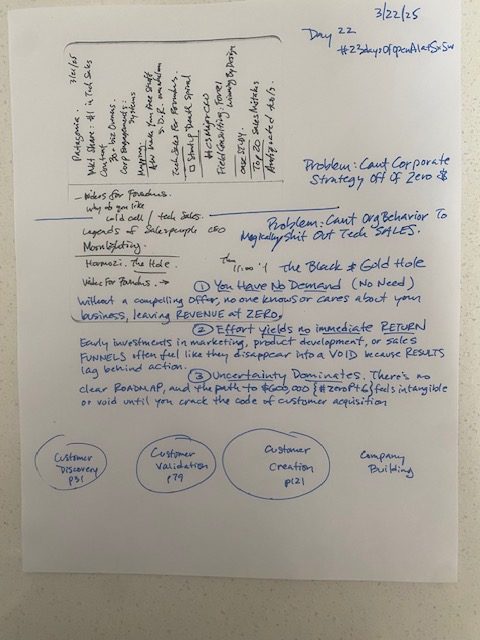 3/22/25
Day 22
#23daysOfOpenAIatSxSw
3/21/25
Patagonia.
Mkt Share: #1 in Tech Sales
Content
30+ biz owners.
Corp Engagements:
Systems
Mapping.
S.D.R.
Tech Sales For Founders.
Startup Death Spiral
Field Consulting:
Winning By Design
CASE STUDY.
Top 20 Sales Mistakes
- Videos For Founders.
why do you like
cold call / tech Sales.
Legends of Salespeople CEO
Moonlighting.
Hormozi. The Hole
Video For Founders. →
Problem: Cant Corporate
Strategy Off Of Zero $
Problem: Cant Org Behavior To
Magically Shit Out Tech SALES.
The Black & Gold Hole
① You Have No Demand (No Need)
Without a compelling Offer, no one knows or cares about your
business, leaving REVENUE at ZERO.
② Effort yields no immediate RETURN
Early investments in marketing, product development, or sales
FUNNELS often feel like they disappear into a VOID because RESULTS
lag behind action.
③ Uncertainty Dominates. There's no
clear ROADMAP, and the path to $600,000 {#zeroPt6} feels intangible
or void until you crack the code of customer acquisition
Customer
Discovery
p31
Customer
Validation
p79
Customer
Creation
p121
Company
Building